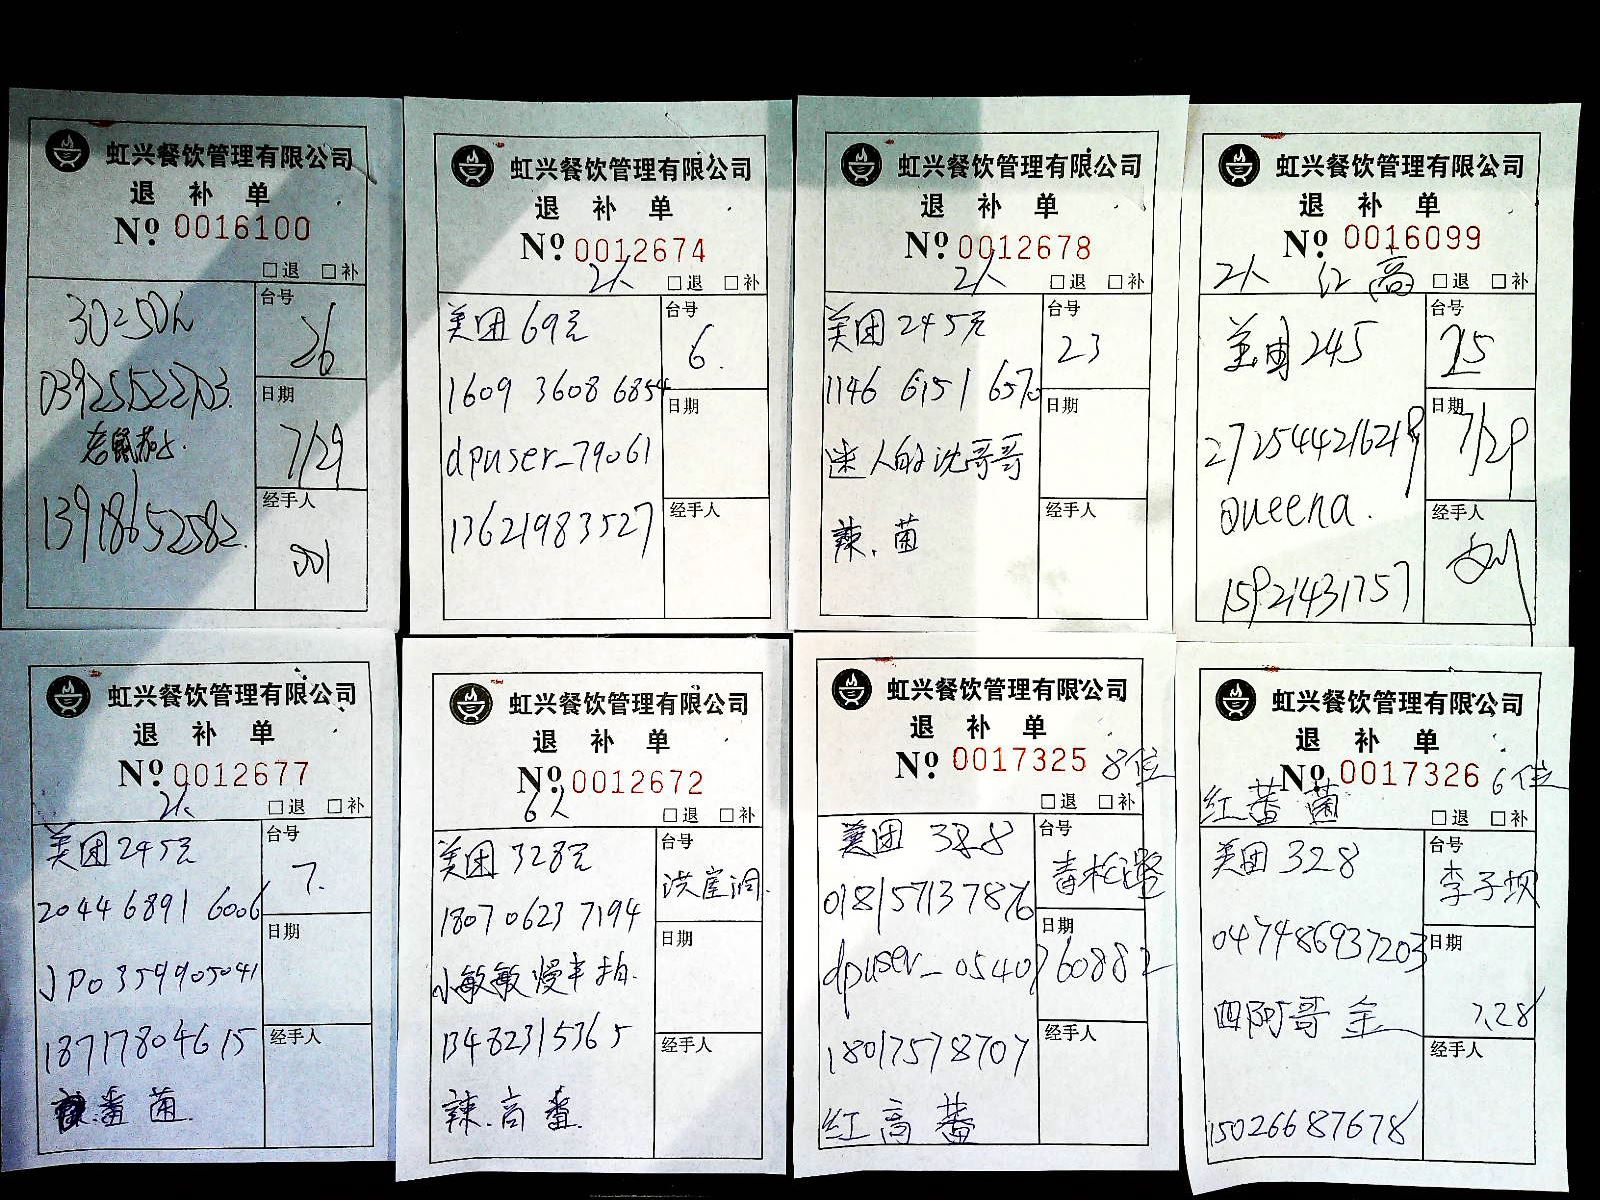 虹兴餐饮管理有限公司
退 补 单
No. 0016100
□退 □补
台号
26
日期
7/29
经手人
001
039251522703.
13918652582.
虹兴餐饮管理有限公司
退 补 单
No. 0012674
2人
□退 □补
美团69元
1609 3608 6854
dpuser_79061
13621983527
台号
6.
日期
经手人
虹兴餐饮管理有限公司
退 补 单
No. 0012678
2人
□退 □补
美团245元
1146 6151 6570
迷人的沈哥哥
辣.菌
台号
23
日期
经手人
虹兴餐饮管理有限公司
退 补 单
No. 0016099
2人 红高
□退 □补
美团245
272544216219
Queena.
15921431757
台号
25
日期
7/29
经手人
虹兴餐饮管理有限公司
退 补 单
No. 0012677
2人
□退 □补
美团245元
2044 6891 6006
JPO359905041
18717804615
番 菌.
台号
7.
日期
经手人
虹兴餐饮管理有限公司
退 补 单
No. 0012672
6人
□退 □补
美团328元
1807 0623 7194
小敏敏慢半拍.
13482315365
辣.高 番.
台号
洪崖洞.
日期
经手人
虹兴餐饮管理有限公司
退 补 单
No. 0017325 8位
□退 □补
美团 328
018157137876
dpuser_0540760882
18017578707
红 高 蕃
台号
日期
经手人
虹兴餐饮管理有限公司
退 补 单
No. 0017326 6位
红 蕃 菌
□退 □补
美团328
047486937203
四阿哥金
15026687678
台号
李子坝
日期
7.28
经手人